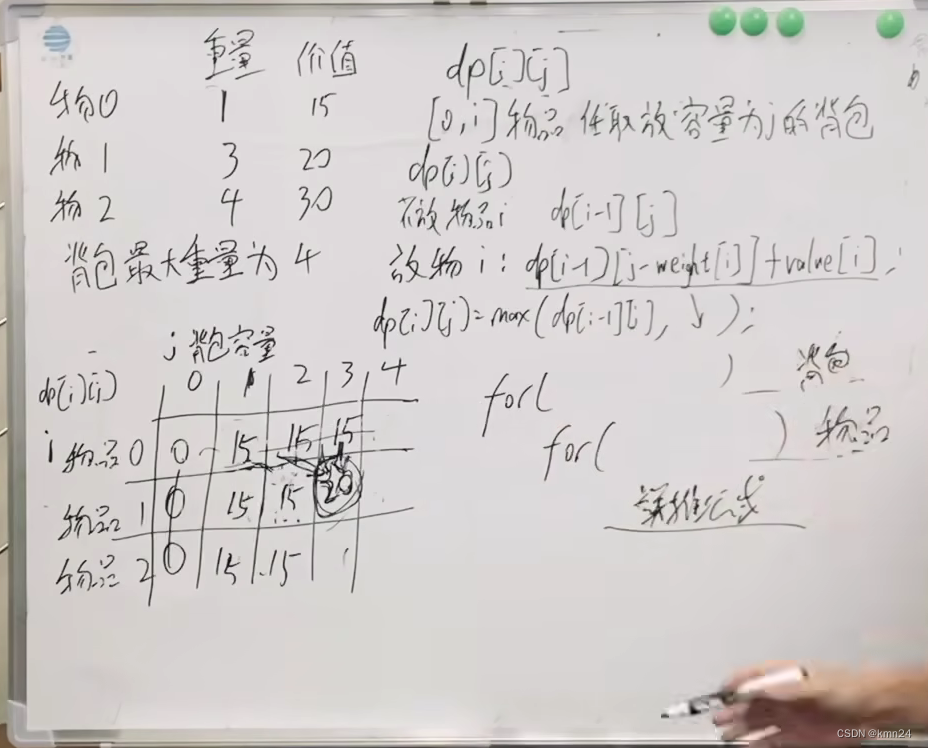 重量 价值
物0 1 15
物1 3 20
物2 4 30
背包最大重量为4
dp[i][j]
[0,i]物品任取放容量为j的背包
dp[i][j]
不放物品i dp[i-1][j]
放物i: dp[i-1][j-weight[i]]+value[i];
dp[i][j]=max(dp[i-1][j], ↘);
j 背包容量
dp[i][j] 0 1 2 3 4
i 物品0 0 15 15 15
物品1 0 15 15 20
物品2 0 15 15
for( ) 背包
for( ) 物品
递推公式
CSDN @kmn24